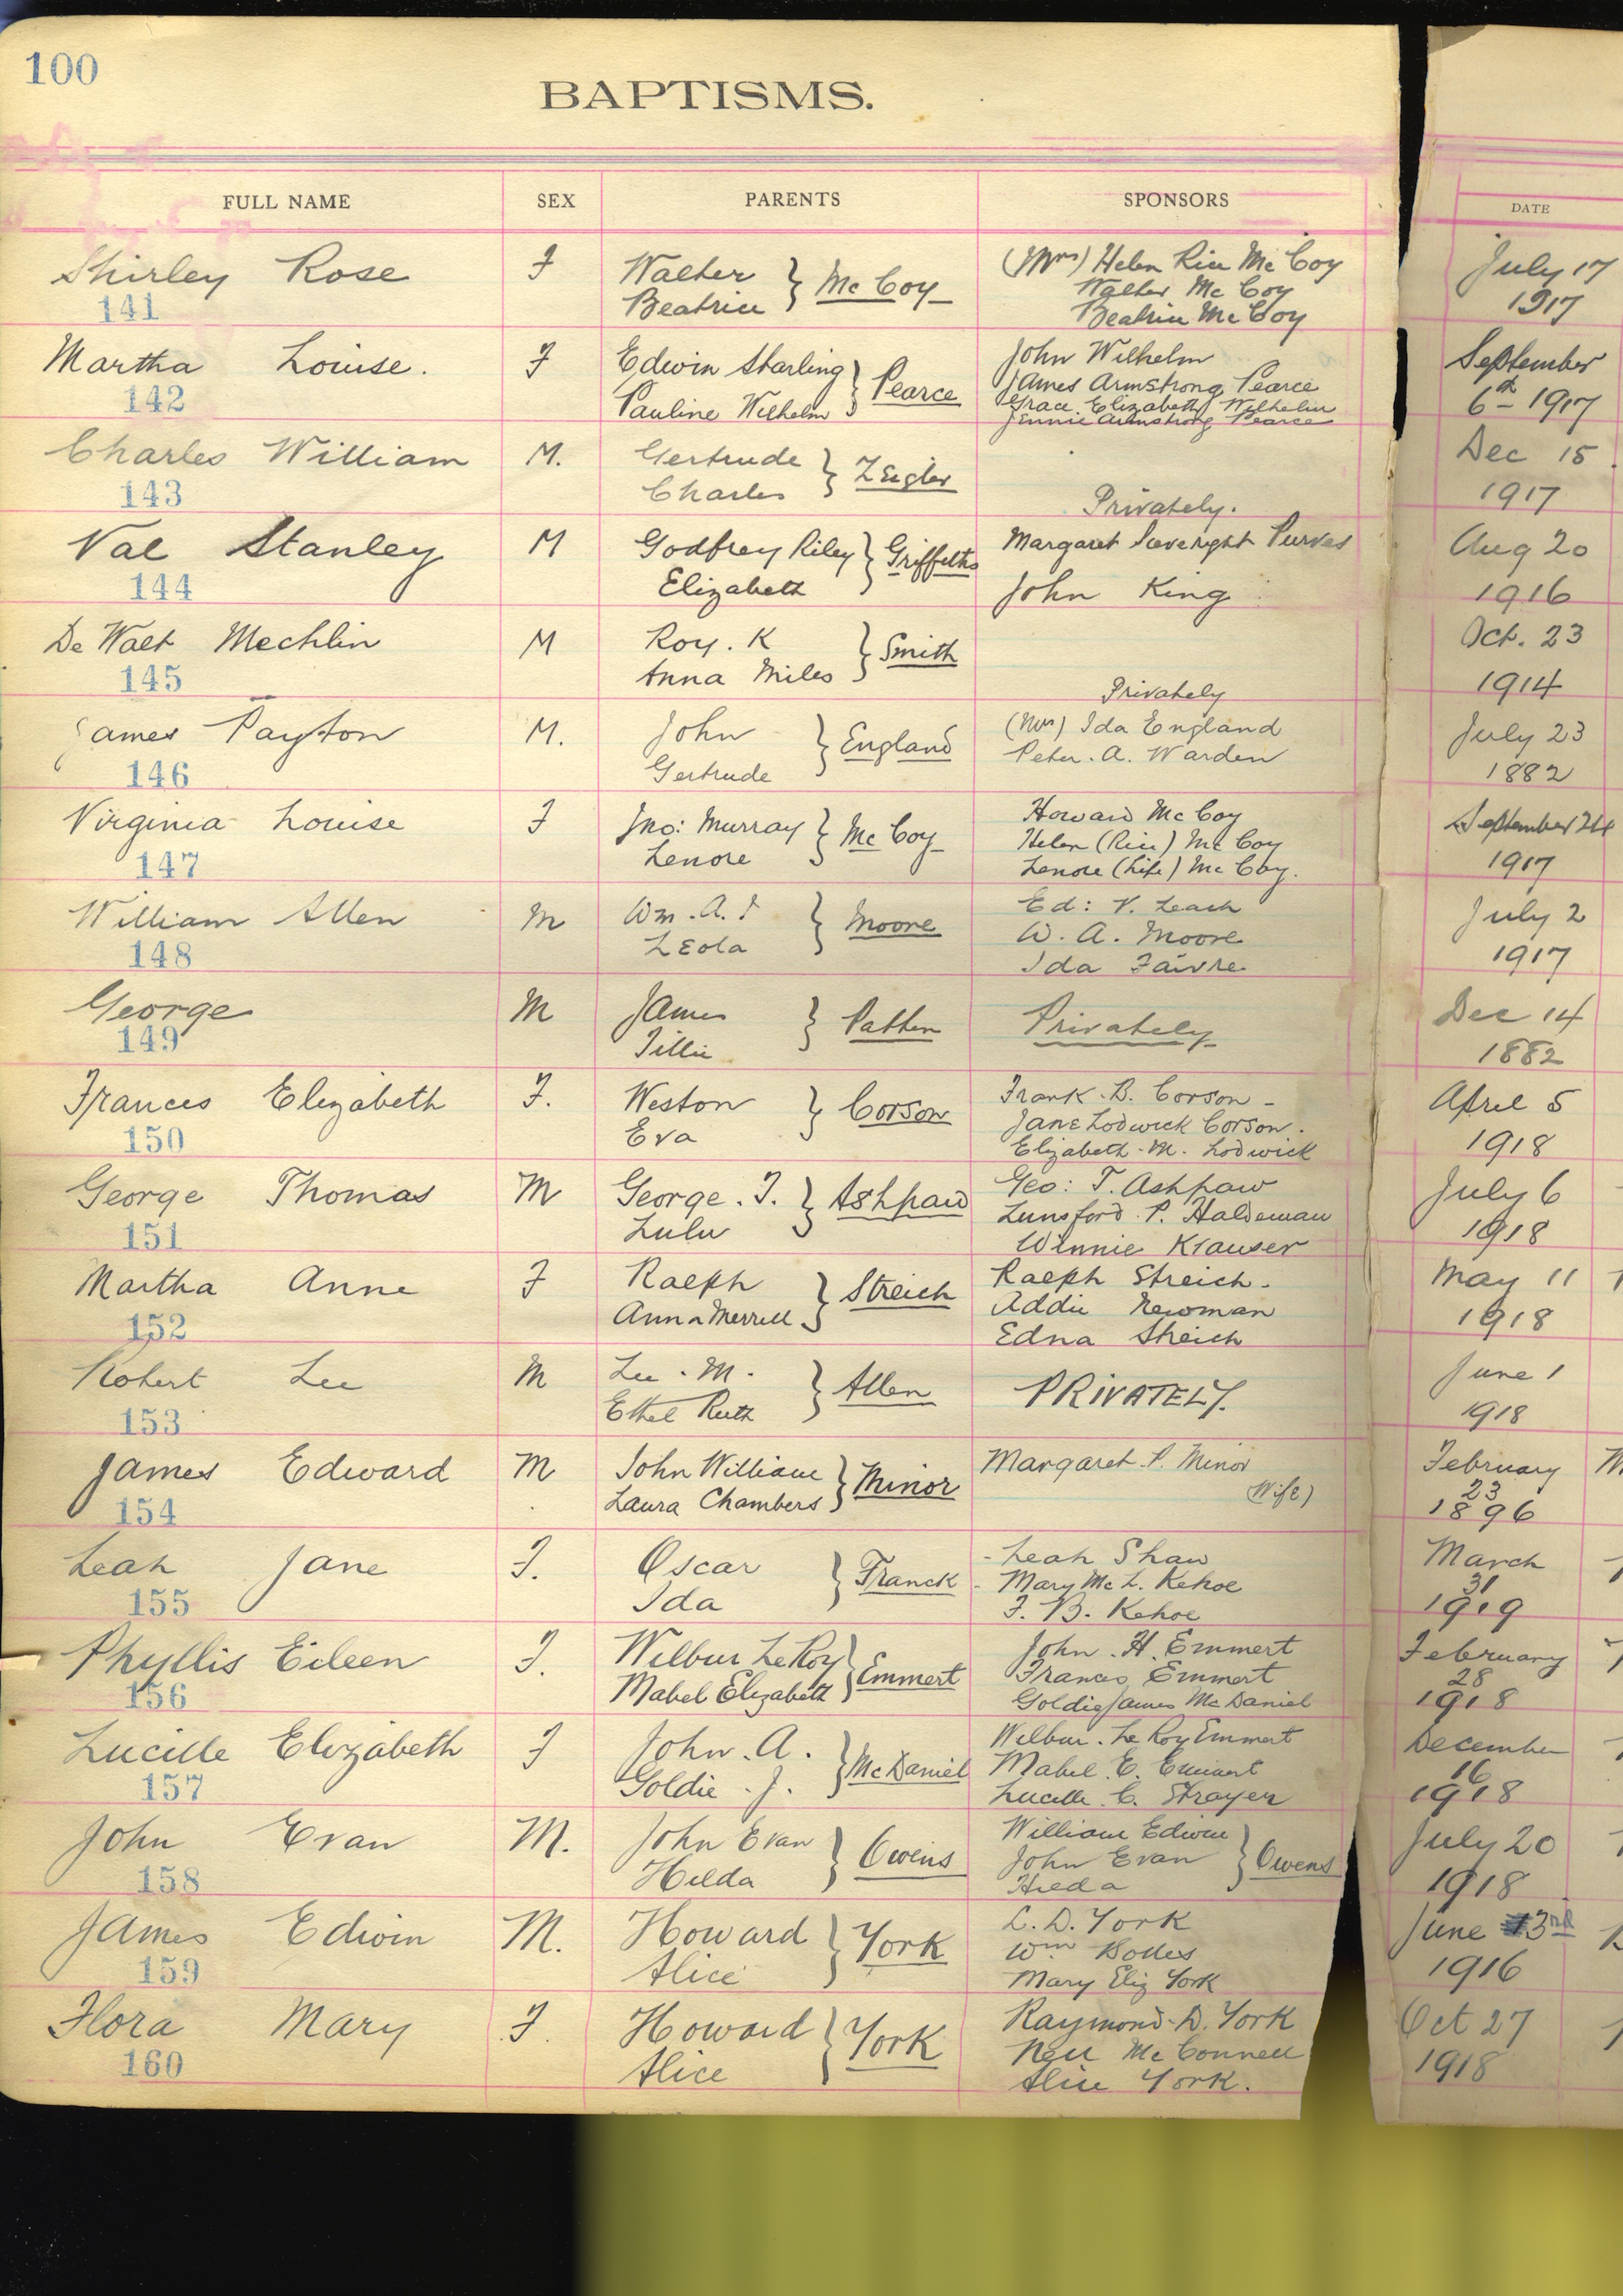 100
BAPTISMS.
FULL NAME SEX PARENTS SPONSORS DATE
Shirley Rose F Walter (Mrs) Helen Rice Mc Coy July 17
141 Beatrice } Mc Coy Walter Mc Coy 1917
Beatrice Mc Coy
Martha Louise. F Edwin Starling John Wilhelm September
142 Pauline Wilhelm } Pearce James Armstrong Pearce 6th 1917
Grace Elizabeth Wilhelm
Jennie Armstrong Pearce
Charles William M. Gertrude Dec 15
143 Charles } Zeigler Privately. 1917
Val Stanley M Godfrey Riley Margaret Purves Aug 20
144 Elizabeth } Griffeths John King 1916
De Walt Mechlin M Roy. K Oct. 23
145 Anna Miles } Smith Privately 1914
James Payton M. John (Mrs) Ida England July 23
146 Gertrude } England Peter. A. Warden 1882
Virginia Louise F Jno: Murray Howard Mc Coy September 24
147 Lenore } Mc Coy Helen (Rice) Mc Coy 1917
Lenore (Life) Mc Coy.
William Allen M Wm. A. Ed: V. Leach July 2
148 LEola } Moore W. A. Moore 1917
Ida Faivre
George M James Dec 14
149 Tillie } Patten Privately 1882
Frances Elizabeth F. Weston Frank. B. Corson - April 5
150 Eva } Corson Jane Lodwick Corson. 1918
Elizabeth. M. Lodwick
George Thomas M George. T. Geo: T. Ashpaw July 6
151 Lulu } Ashpaw Lunsford. P. Haldeman 1918
Winnie Krauser
Martha Anne F Ralph Ralph Streich. May 11
152 Anna Merrell } Streich Addie Newman 1918
Edna Streich
Robert Lee M Lee. M. June 1
153 Ethel Ruth } Allen PRIVATELY. 1918
James Edward M John William Margaret. P. Minor February
154 Laura Chambers } Minor (Wife) 23
1896
Leah Jane F. Oscar Leah Shaw March
155 Ida } Franck Mary Mc L. Kehoe 31
F. B. Kehoe 1919
Phyllis Eileen F. Wilbur LeRoy John. H. Emmert February
156 Mabel Elizabeth } Emmert Frances Emmert 28
Goldie James Mc Daniel 1918
Lucille Elizabeth F John. A. Wilbur. Le Roy Emmert December
157 Goldie. J. } Mc Daniel Mabel. E. Emmert 16
Lucille. C. Strayer 1918
John Evan M. John Evan William Edwin July 20
158 Hilda } Owens John Evan } Owens 1918
Hilda
James Edwin M. Howard L. D. York June 3rd
159 Alice } York Wm Bolles 1916
Mary Eliz York
Flora Mary F. Howard Raymond. D. York Oct 27
160 Alice } York Nell Mc Connell 1918
Alice York.